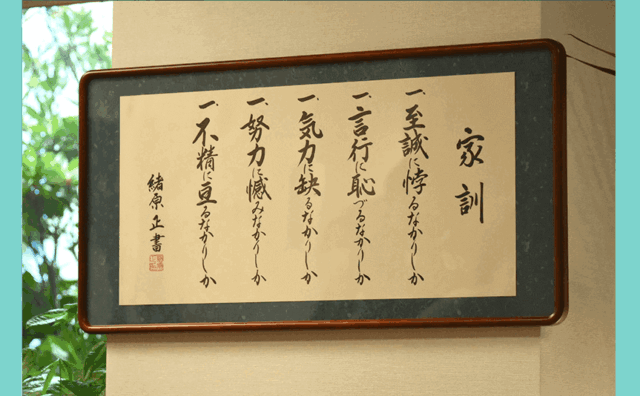 家訓
一、至誠に悖るなかりしか
一、言行に恥づるなかりしか
一、気力に缺るなかりしか
一、努力に憾みなかりしか
一、不精に亘るなかりしか
緒原正書